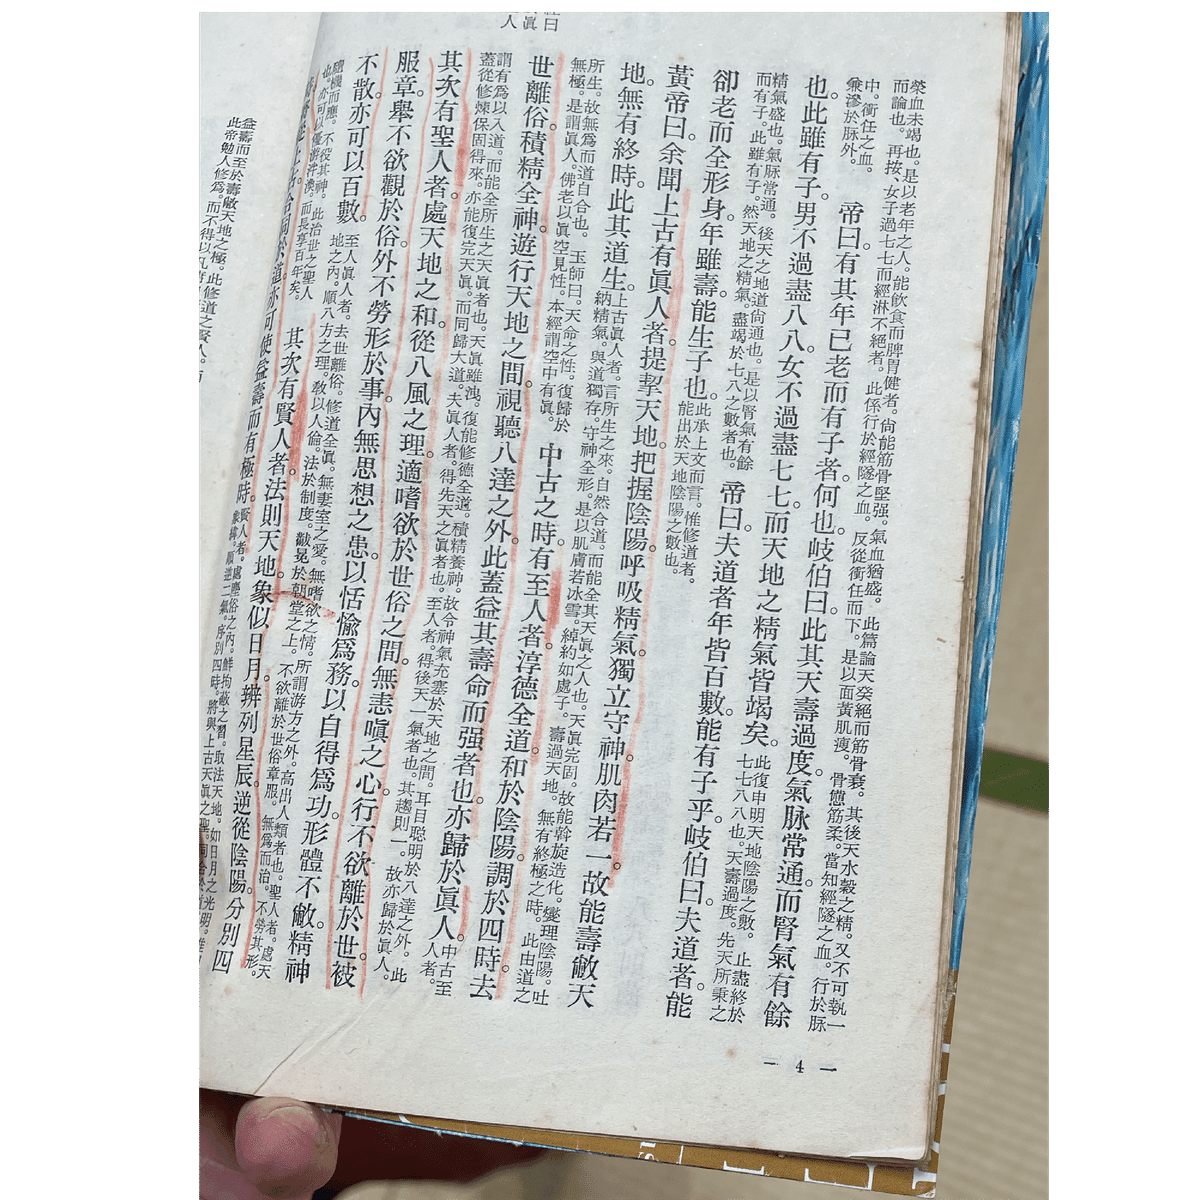 榮血未竭也。是以老年之人。能飲食而脾胃健者。尙能筋骨堅强。氣血猶盛。此篇論天癸絕而筋骨衰。其後天水穀之精。又不可執一
而論也。再按、女子過七七而經淋不絕者。此係行於經隧之血。反從衝任而下。是以面黃肌瘦。骨憊筋柔。當知經隧之血。行於脉
中。衝任之血。
兼滲於脉外。
帝曰。有其年已老而有子者。何也。岐伯曰。此其天壽過度。氣脉常通。而腎氣有餘
也。此雖有子。男不過盡八八。女不過盡七七。而天地之精氣皆竭矣。
此復申明天地陰陽之數。止盡終於
七七八八也。天壽過度。先天所秉之
精氣盛也。氣脉常通。後天之地道尙通也。是以腎氣有餘
而有子。此雖有子。然天地之精氣。盡竭於七八之數者也。
帝曰。夫道者年皆百數。能有子乎。岐伯曰。夫道者能
卻老而全形。身年雖壽。能生子也。
此承上文而言。惟修道者。
能出於天地陰陽之數也。
黃帝曰。余聞上古有眞人者。提挈天地。把握陰陽。呼吸精氣。獨立守神。肌肉若一。故能壽敝天
地。無有終時。此其道生。
上古眞人者。言所生之來。自然合道。而能全其天眞之人也。天眞完固。故能斡旋造化。燮理陰陽。吐
納精氣。與道獨存。守神全形。是以肌膚若冰雪。綽約如處子。壽過天地。無有終極之時。此由道之
所生。故無爲而道自合也。玉師曰。天命之性。復歸於
無極。是謂眞人。佛老以眞空見性。本經謂空中有眞。
中古之時。有至人者。淳德全道。和於陰陽。調於四時。去
世離俗。積精全神。游行天地之間。視聽八達之外。此蓋益其壽命而强者也。亦歸於眞人。
中古至
人者。
謂有爲以入道。而能全所生之天眞者也。天眞雖洩。復能修德全道。積精養神。故令神氣充塞於天地之間。耳目聰明於八達之外。此
蓋從修煉保固得來。亦能復完天眞。而同歸大道。夫眞人者。得先天之眞者也。至人者。得後天一氣者也。其趨則一。故亦歸於眞人。
其次有聖人者。處天地之和。從八風之理。適嗜欲於世俗之間。無恚嗔之心。行不欲離於世。被
服章。舉不欲觀於俗。外不勞形於事。內無思想之患。以恬愉爲務。以自得爲功。形體不敝。精神
不散。亦可以百數。
至人眞人者。去世離俗。修道全眞。無妻室之愛。無嗜欲之情。所謂游方之外。高出人類者也。聖人者。處天
地之內。順八方之理。敎以人倫。法於制度。黻冕於朝堂之上。不欲離於世俗章服。無爲而治。不勞其形。
隨機而應。不役其神。此治世之聖人
也。亦可以優游泮渙。而長享百年矣。
其次有賢人者。法則天地。象似日月。辨列星辰。逆從陰陽。分別四
時。將從上古。合同於道。亦可使益壽而有極時。
賢人者。處塵俗之內。鮮拘蔽之習。取法天地。如日月之光明。
益壽而至於壽敝天地之極。此修道之賢人。
此帝勉人修爲。而不得以
— 4 —